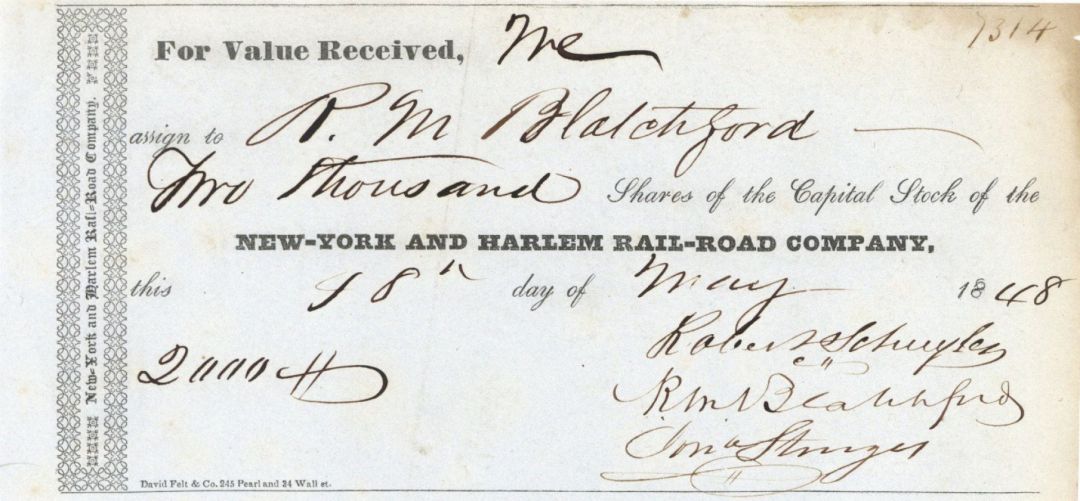 7314
For Value Received, We
assign to R. M Blatchford
Two thousand Shares of the Capital Stock of the
NEW-YORK AND HARLEM RAIL-ROAD COMPANY,
this 18th day of May 1848
2000
Robert Schuyler
R M Blatchford
Jona Sturges
David Felt & Co. 245 Pearl and 34 Wall st.
New-York and Harlem Rail-Road Company.